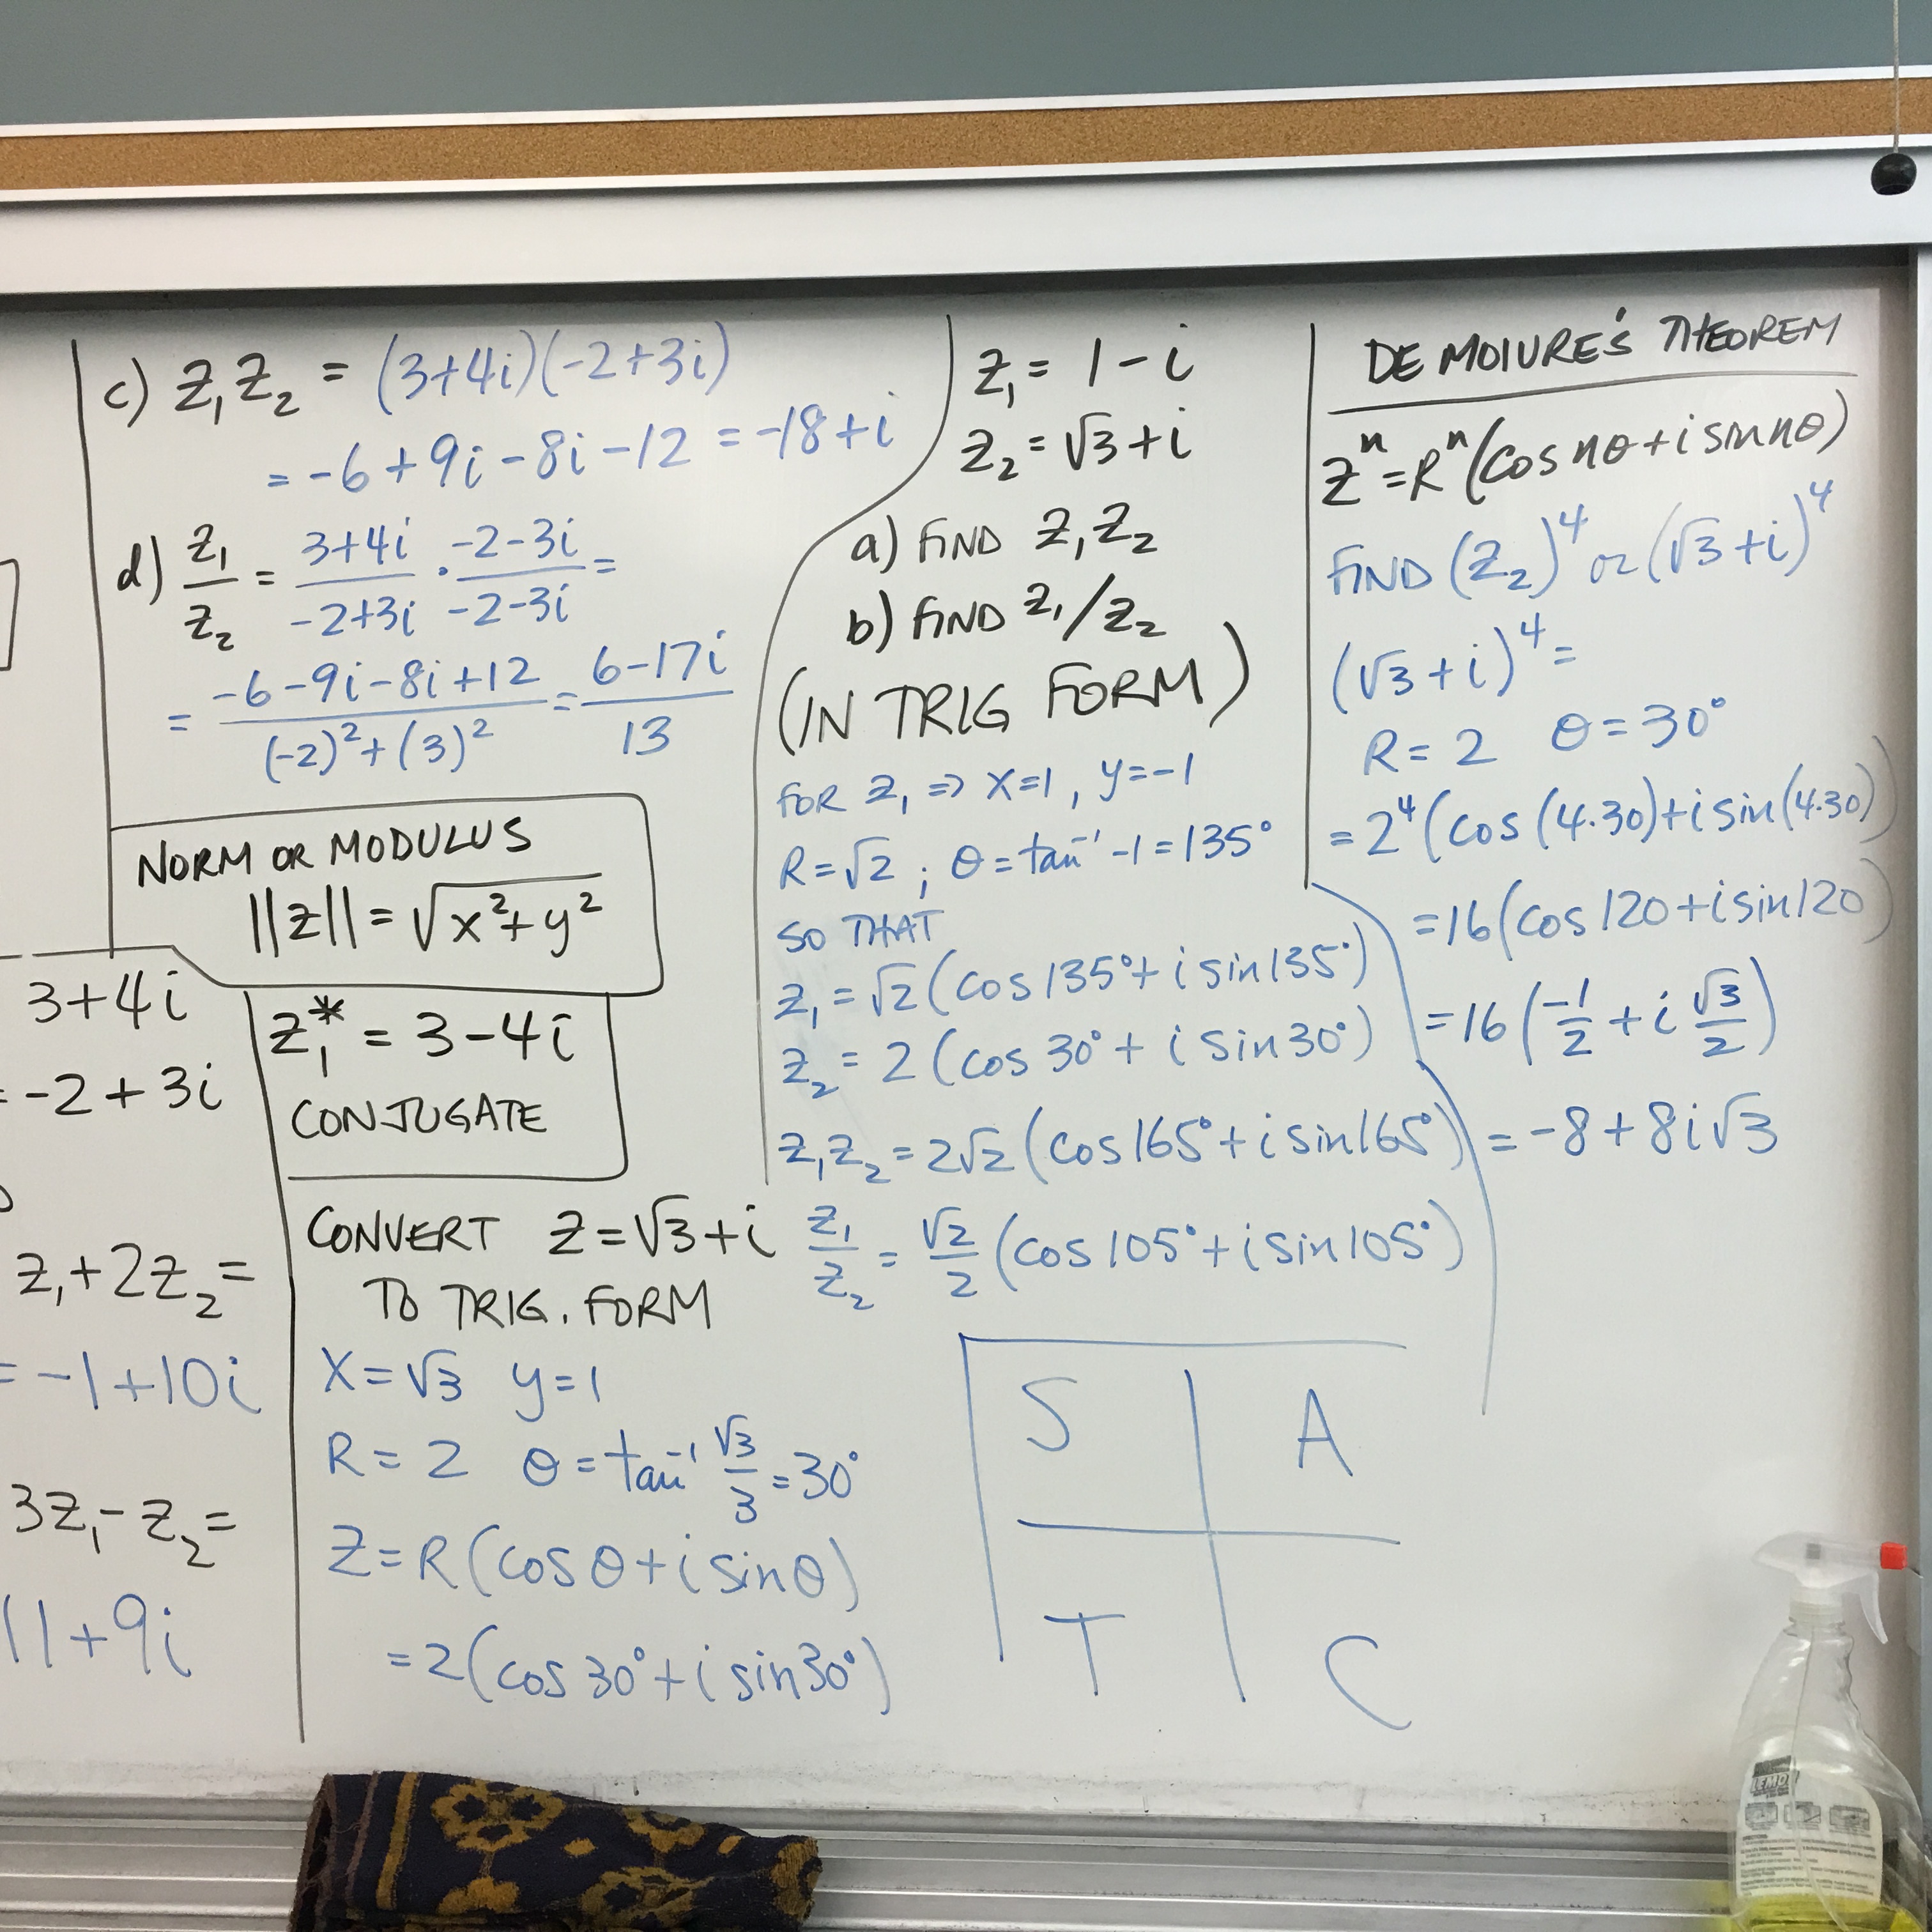 c) Z₁Z₂ = (3+4i)(-2+3i)
= -6+9i-8i-12 = -18+i
d) Z₁/Z₂ = (3+4i)/(-2+3i) · (-2-3i)/(-2-3i) =
= (-6-9i-8i+12)/((-2)²+(3)²) = (6-17i)/13
NORM OR MODULUS
||Z|| = √(x²+y²)
3+4i
= -2+3i
Z₁* = 3-4i
CONJUGATE
Z₁+2Z₂ =
= -1+10i
3Z₁-Z₂ =
11+9i
CONVERT Z=√3+i
TO TRIG. FORM
X=√3 y=1
R=2 θ=tan⁻¹ √3/3 = 30°
Z=R(cosθ+i sinθ)
=2(cos30°+i sin30°)
Z₁ = 1-i
Z₂ = √3+i
a) FIND Z₁Z₂
b) FIND Z₁/Z₂
(IN TRIG FORM)
FOR Z₁ ⇒ X=1, y=-1
R=√2 ; θ=tan⁻¹ -1=135°
SO THAT
Z₁ = √2(cos135°+i sin135°)
Z₂ = 2(cos30°+i sin30°)
Z₁Z₂ = 2√2(cos165°+i sin165°)
Z₁/Z₂ = √2/2(cos105°+i sin105°)
S A
T C
DE MOIURE'S THEOREM
Zⁿ=Rⁿ(cos nθ+i sin nθ)
FIND (Z₂)⁴ or (√3+i)⁴
(√3+i)⁴ =
R=2 θ=30°
=2⁴(cos(4·30)+i sin(4·30))
=16(cos120+i sin120)
=16(-1/2+i √3/2)
=-8+8i√3
LEMO